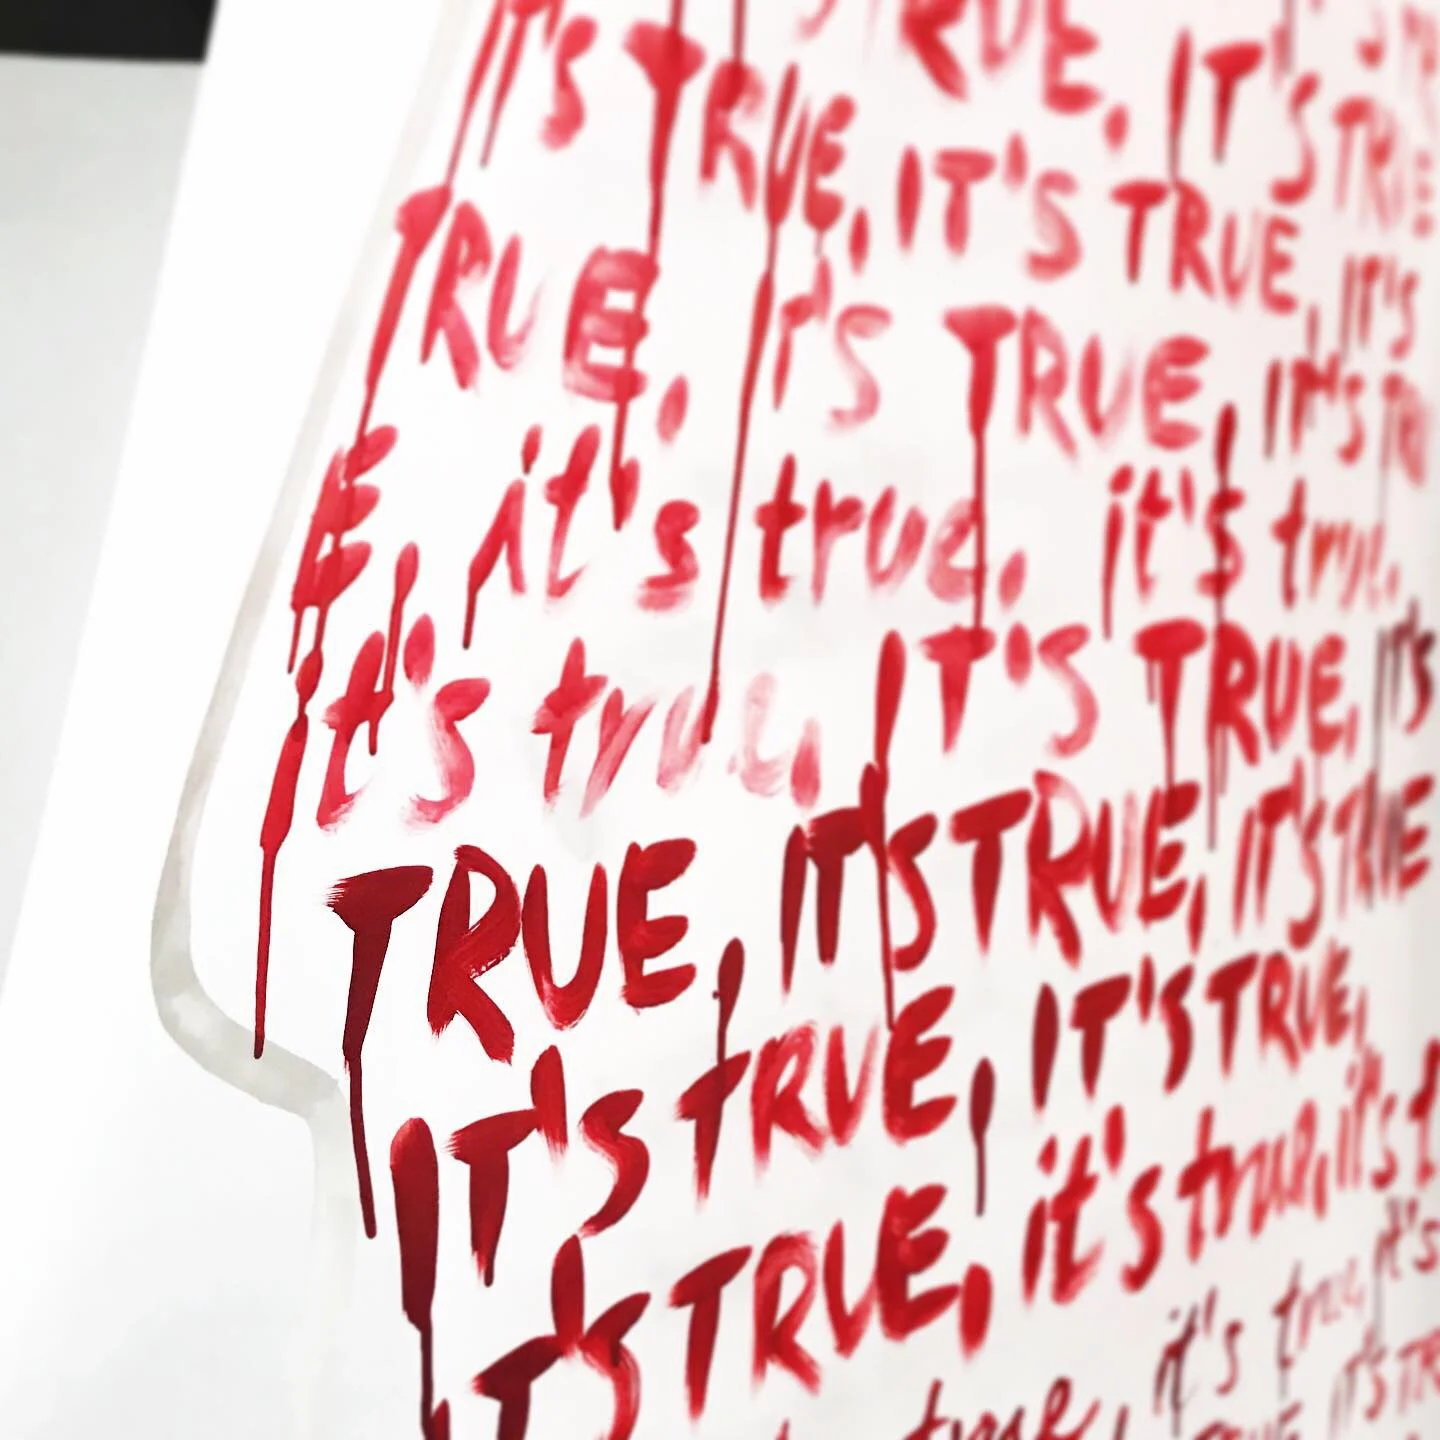 RUE, IT'S
IT'S TRUE, IT'S TRUE, IT'S
TRUE, IT'S TRUE, IT'S
E, it's true, it's true,
it's true, IT'S TRUE, IT'S
TRUE, IT'S TRUE, IT'S TRUE
IT'S TRUE, IT'S TRUE,
IT'S TRUE, it's true, it's t
true, it's true, it's
IT'S TR